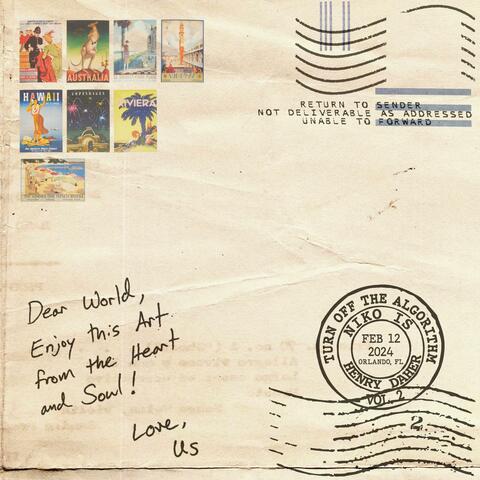 AUSTRALIA
HAWAII
RIVIERA
RETURN TO SENDER
NOT DELIVERABLE AS ADDRESSED
UNABLE TO FORWARD
Dear World,
Enjoy this Art
from the Heart
and Soul!
Love,
Us
TURN OFF THE ALGORITHM
NIKO IS
FEB 12
2024
ORLANDO, FL
HENRY DAHER
VOL. 2
2